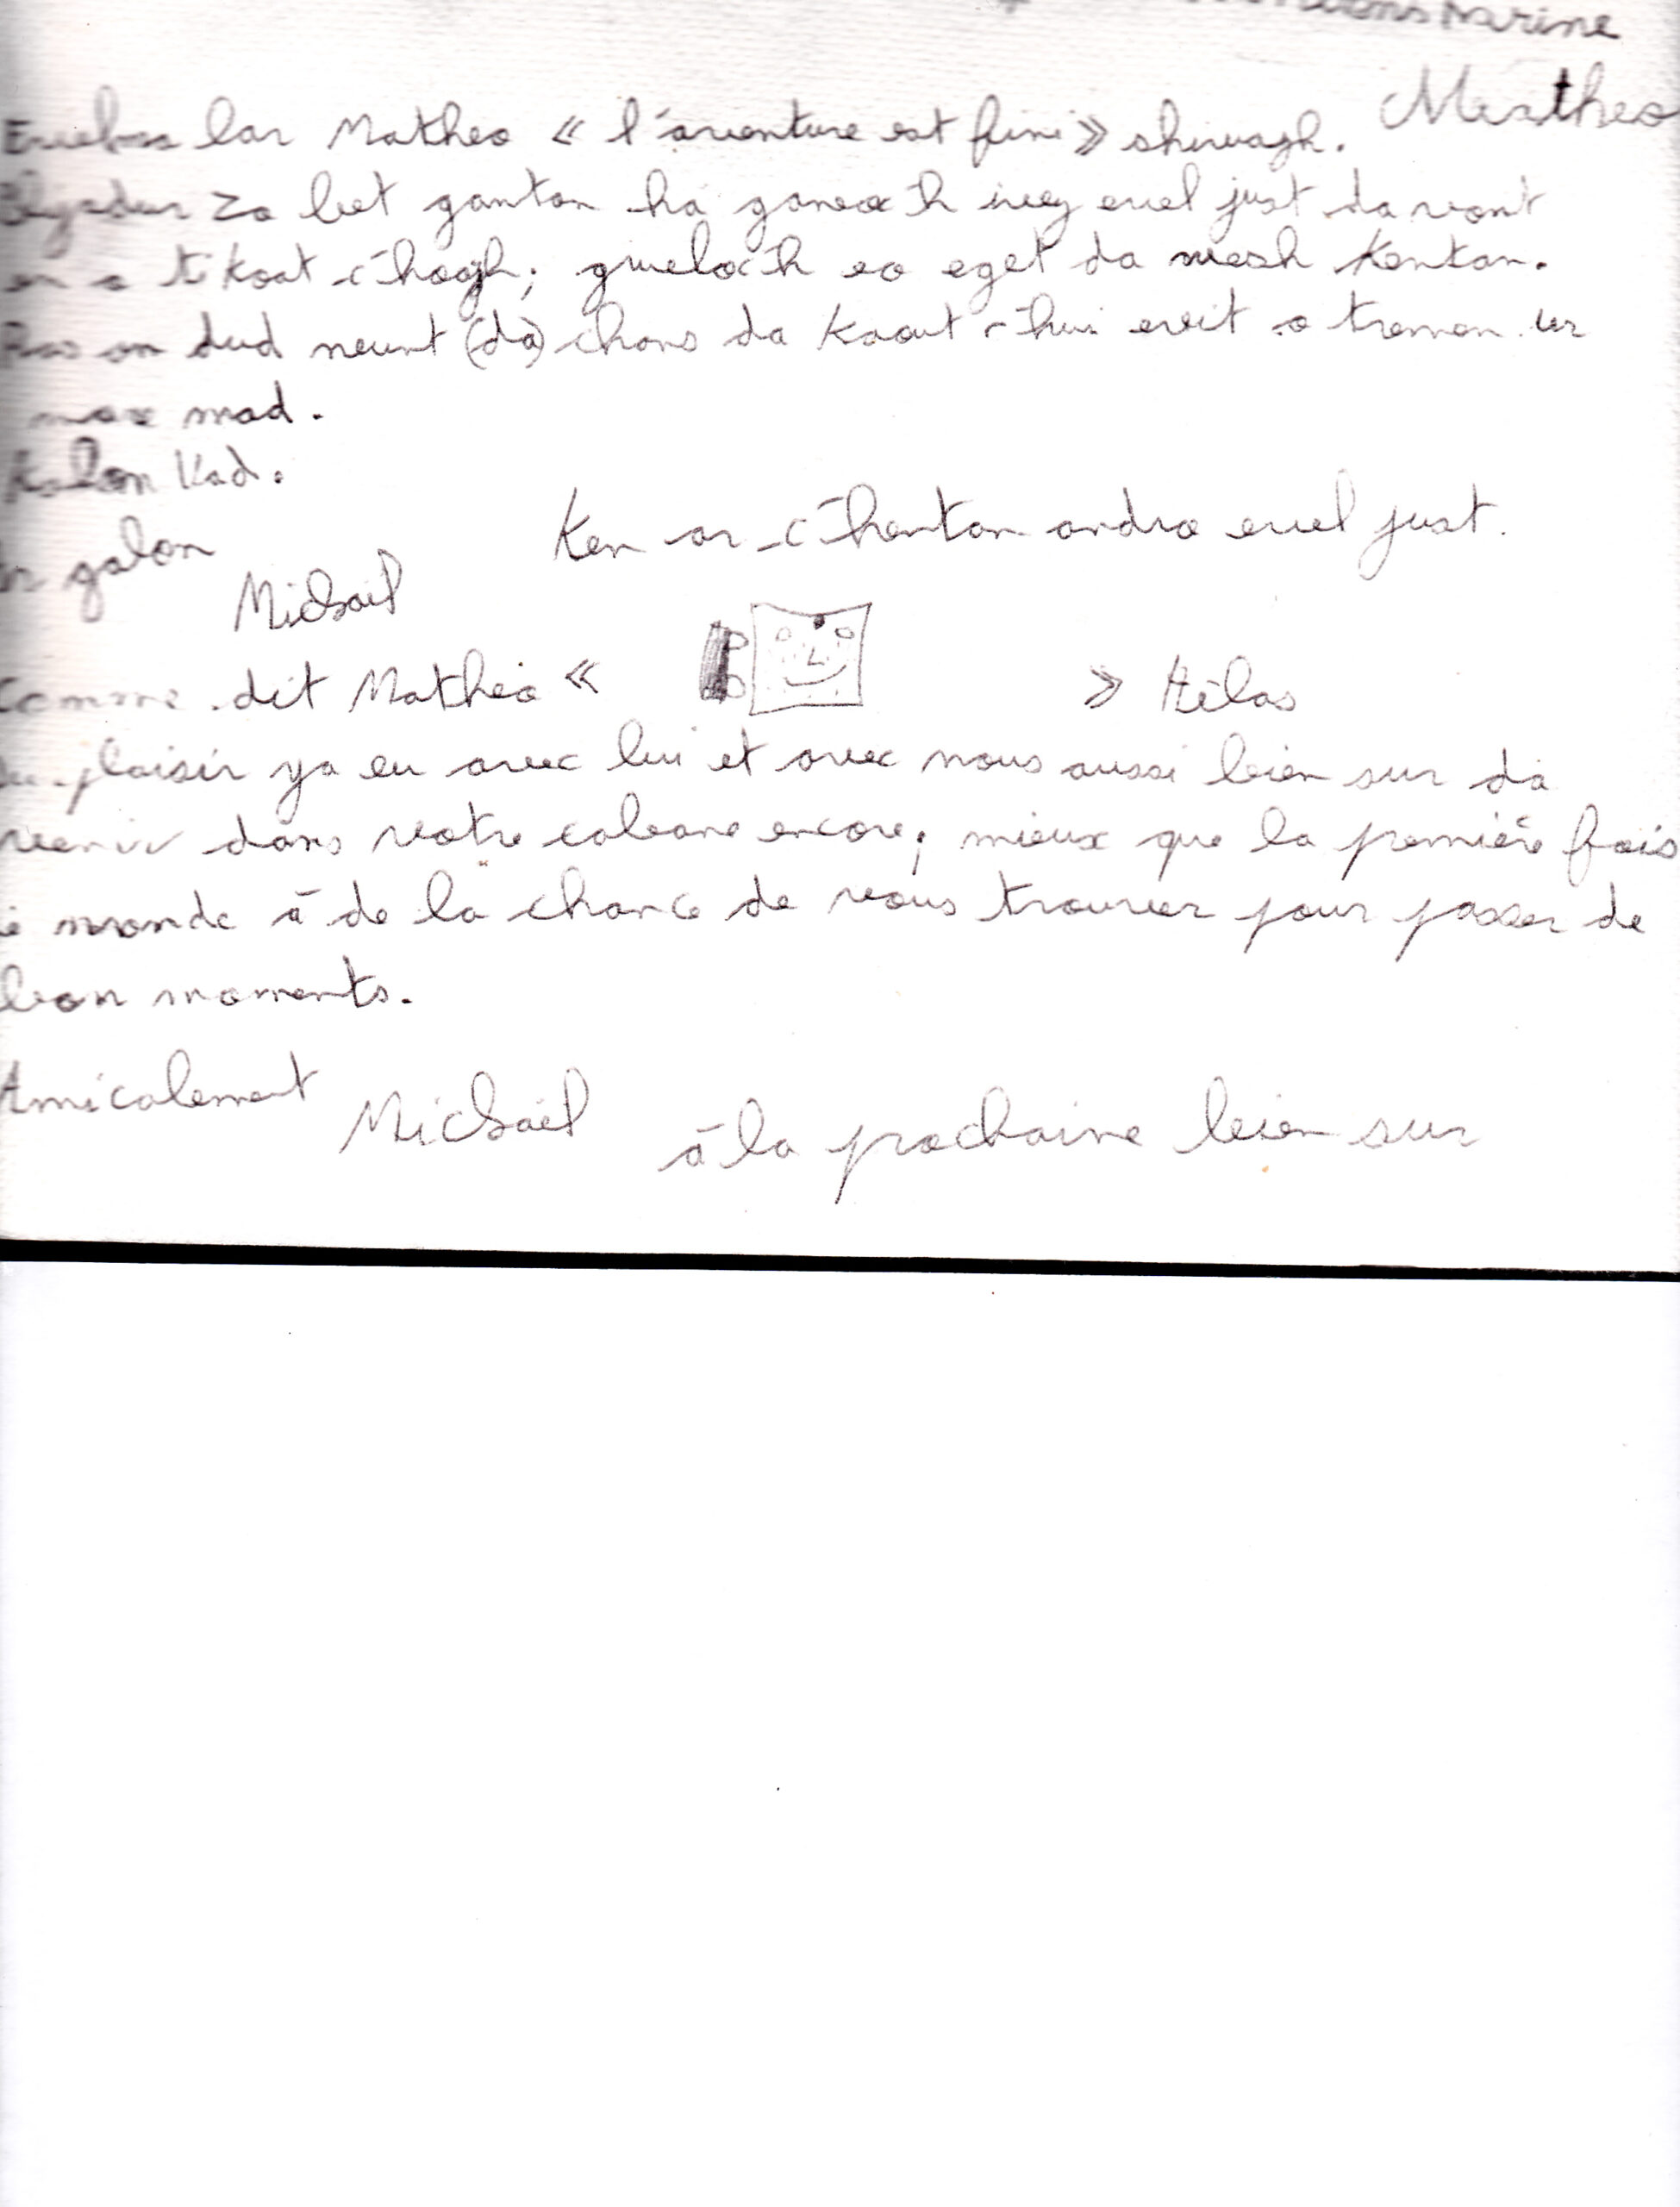 Marine
Matheo
lar Matheo « l'aventure est fini » shiwagh.
Plijadur zo bet ganton ha ganeoc'h ivez evel just da vont
en o ti koat c'hoazh; gweloc'h eo eget da wesh kentan.
an dud neunt (da) chans da kaout c'hui evit o tremen ur
mare mad.
Kalon Vad.
galon
Ken ar c'hentan andro evel just.
Mickaël
comme dit Matheo « » Hélas
du plaisir ya eu avec lui et avec nous aussi bien sur da
venir dans votre cabane encore; mieux que la première fois
le monde à de la chance de vous trouver pour passer de
bon moments.
Amicalement
Mickaël à la prochaine bien sur